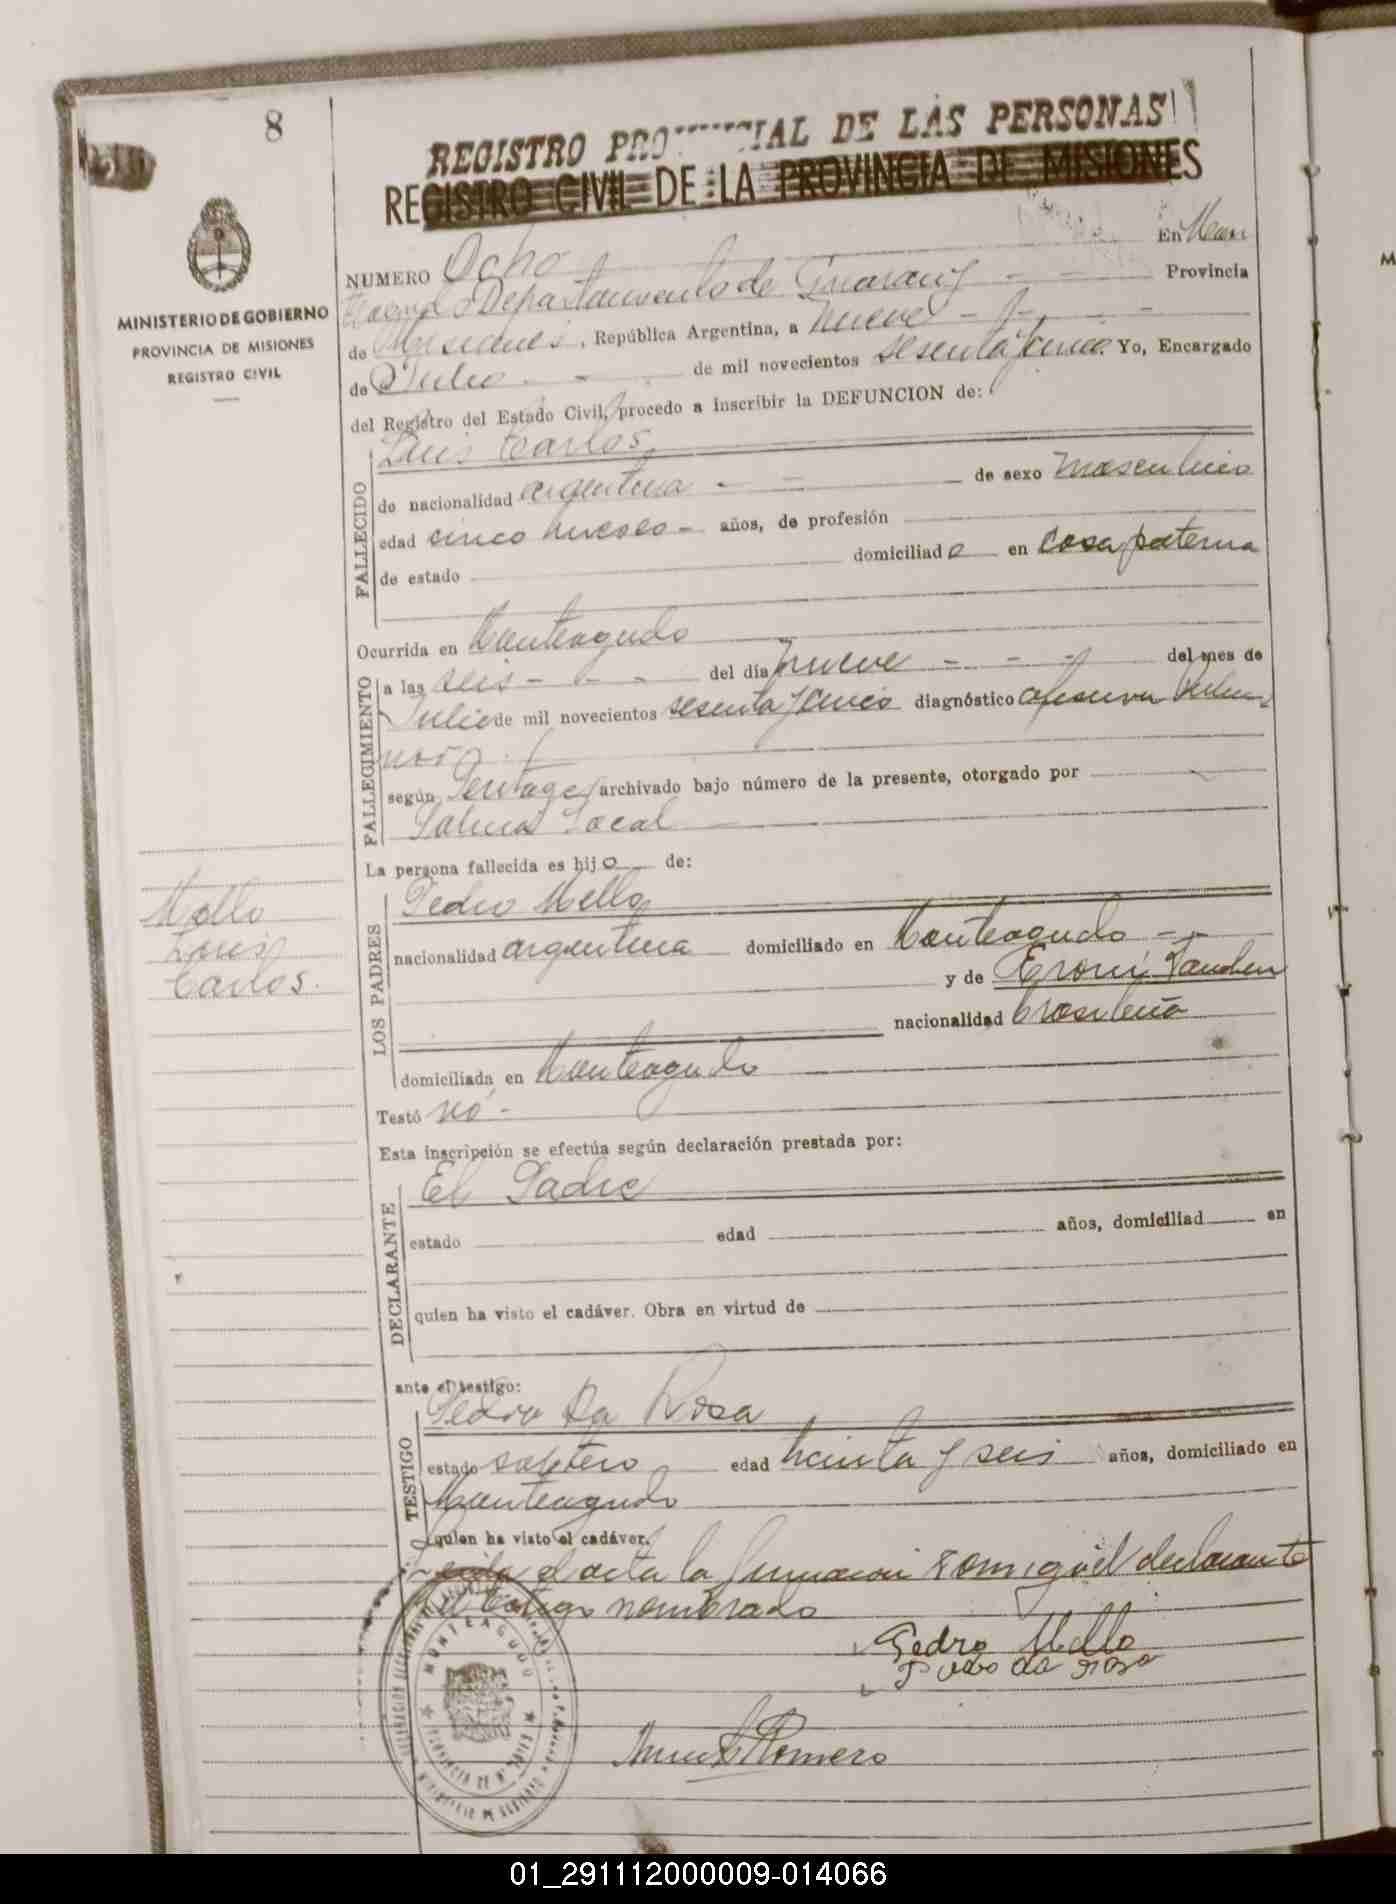 8
REGISTRO PROVINCIAL DE LAS PERSONAS
REGISTRO CIVIL DE LA PROVINCIA DE MISIONES
MINISTERIO DE GOBIERNO
PROVINCIA DE MISIONES
REGISTRO CIVIL
NUMERO Ocho En Mon
teagudo Departamento de Guaraní Provincia
de Misiones, República Argentina, a nueve
de Julio de mil novecientos sesenta y cinco. Yo, Encargado
del Registro del Estado Civil, procedo a inscribir la DEFUNCION de:
FALLECIDO
Luis Carlos
de nacionalidad argentina de sexo masculino
edad cinco meses años, de profesión
de estado domiciliado en casa paterna
Ocurrida en Monteagudo
FALLECIMIENTO
a las seis del día nueve del mes de
Julio de mil novecientos sesenta y cinco diagnóstico
según archivado bajo número de la presente, otorgado por
Policia Local
La persona fallecida es hijo de:
Mello
Luis
Carlos.
LOS PADRES
Pedro Mello
nacionalidad argentina domiciliado en Monteagudo
y de Eroni
nacionalidad brasileña
domiciliada en Monteagudo
Testó no
Esta inscripción se efectúa según declaración prestada por:
DECLARANTE
El Padre
estado edad años, domiciliad en
quien ha visto el cadáver. Obra en virtud de
ante el testigo:
TESTIGO
Pedro Da Rosa
estado soltero edad treinta y seis años, domiciliado en
Monteagudo
quien ha visto el cadáver.
Leida el acta la firmaron conmigo el declarante
y el testigo nombrado
Pedro Mello
Pedro da Rosa
Romero
MONTEAGUDO
PROVINCIA DE MISIONES
01_291112000009-014066